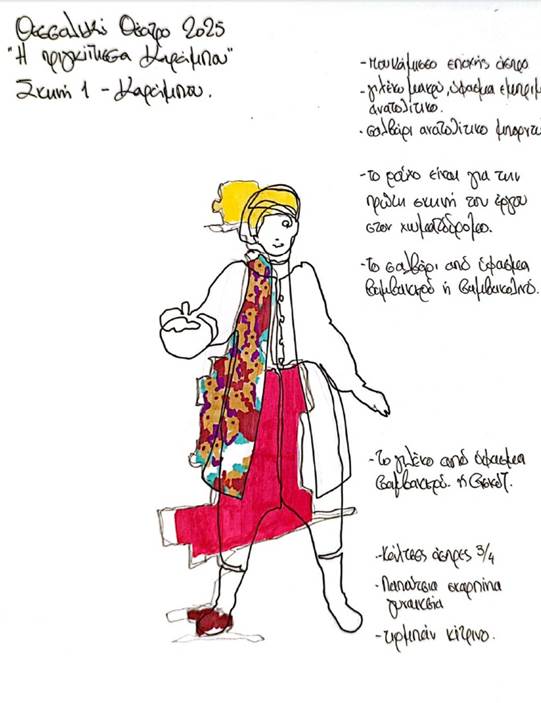 Θεσσαλικό Θέατρο 2025
"Η πριγκίπισσα Καράμπου"
Σκηνή 1 - Καράμπου.
- πουκάμισο εποχής άσπρο
- γιλέκο μακρύ, ύφασμα εμπριμ
ανατολίτικο.
- σαλβάρι ανατολίτικο μπορντώ
- το ρούχο είναι για την
πρώτη σκηνή του έργου
στον χωματόδρομο.
- Το σαλβάρι από ύφασμα
βαμβακερό ή βαμβακολινό.
- Το γιλέκο από ύφασμα
βαμβακερό ή
- Κάλτσες άσπρες 3/4
- Παπούτσια σκαρπίνια
γυναικεία
- τιρμπάν κίτρινο.